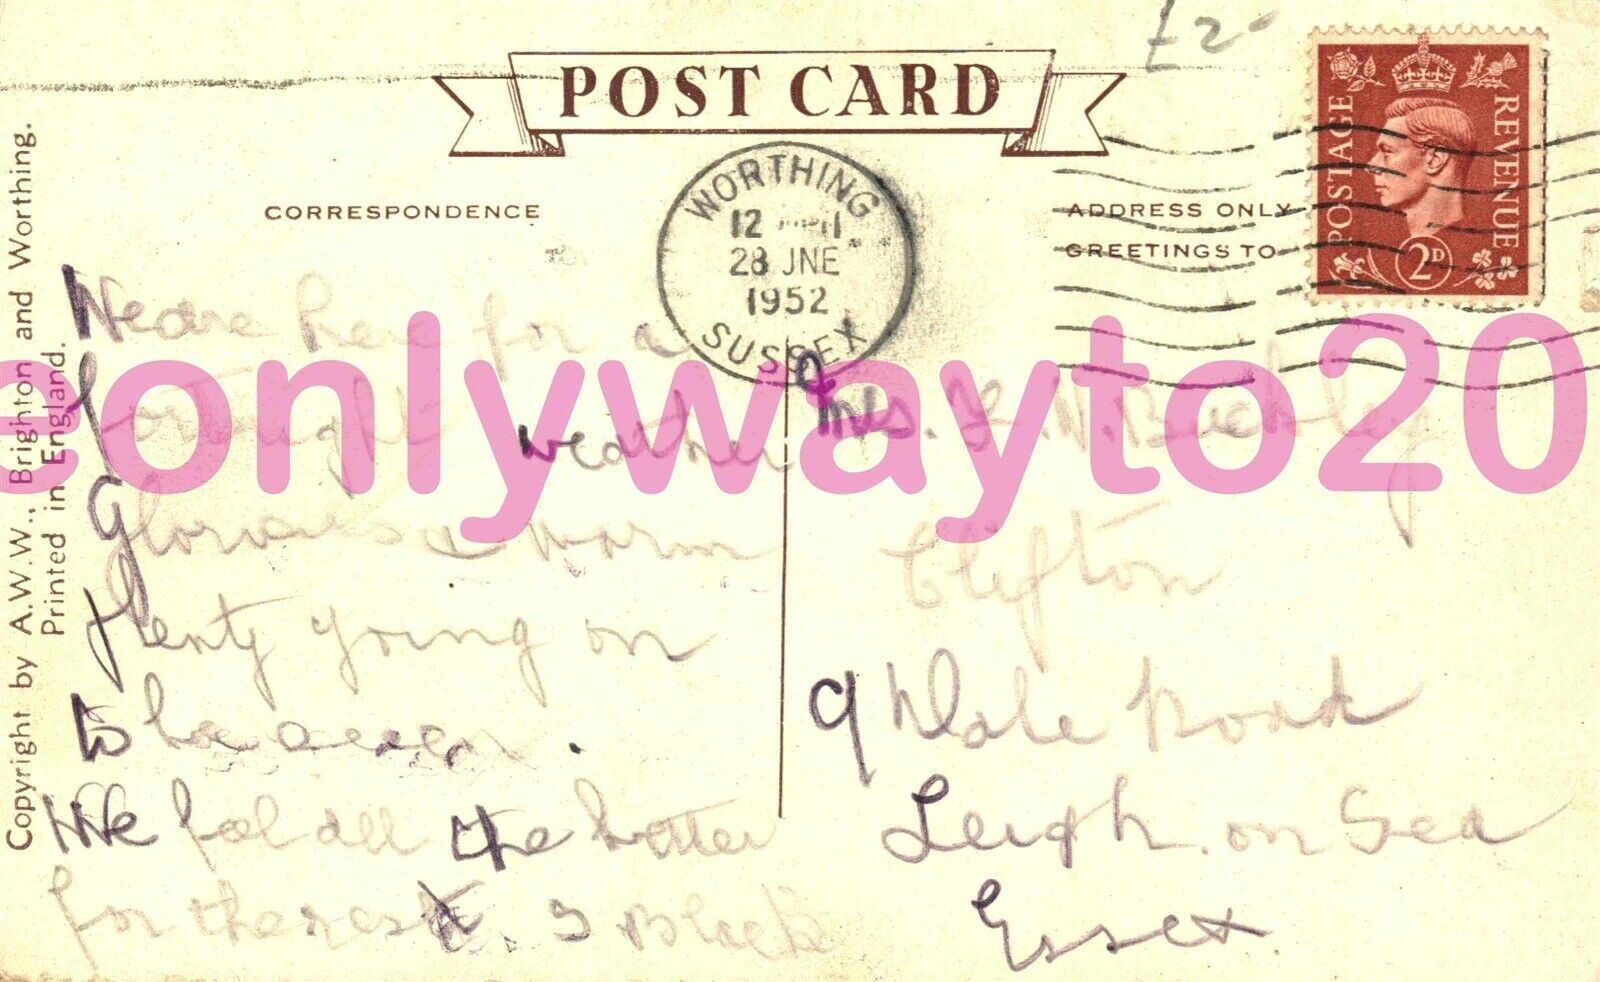 £2-
POST CARD
CORRESPONDENCE
ADDRESS ONLY
GREETINGS TO
WORTHING
12
28 JNE
1952
SUSSEX
POSTAGE
REVENUE
2D
Copyright by A.W.W., Brighton and Worthing.
Printed in England.
We are here for a
fortnight weather
glorious & warm
plenty going on
to be seen.
We feel all the better
for the rest. Black
Mrs.
Clifton
9 Dale Road
Leigh. on Sea
Essex.
eonlywayto20